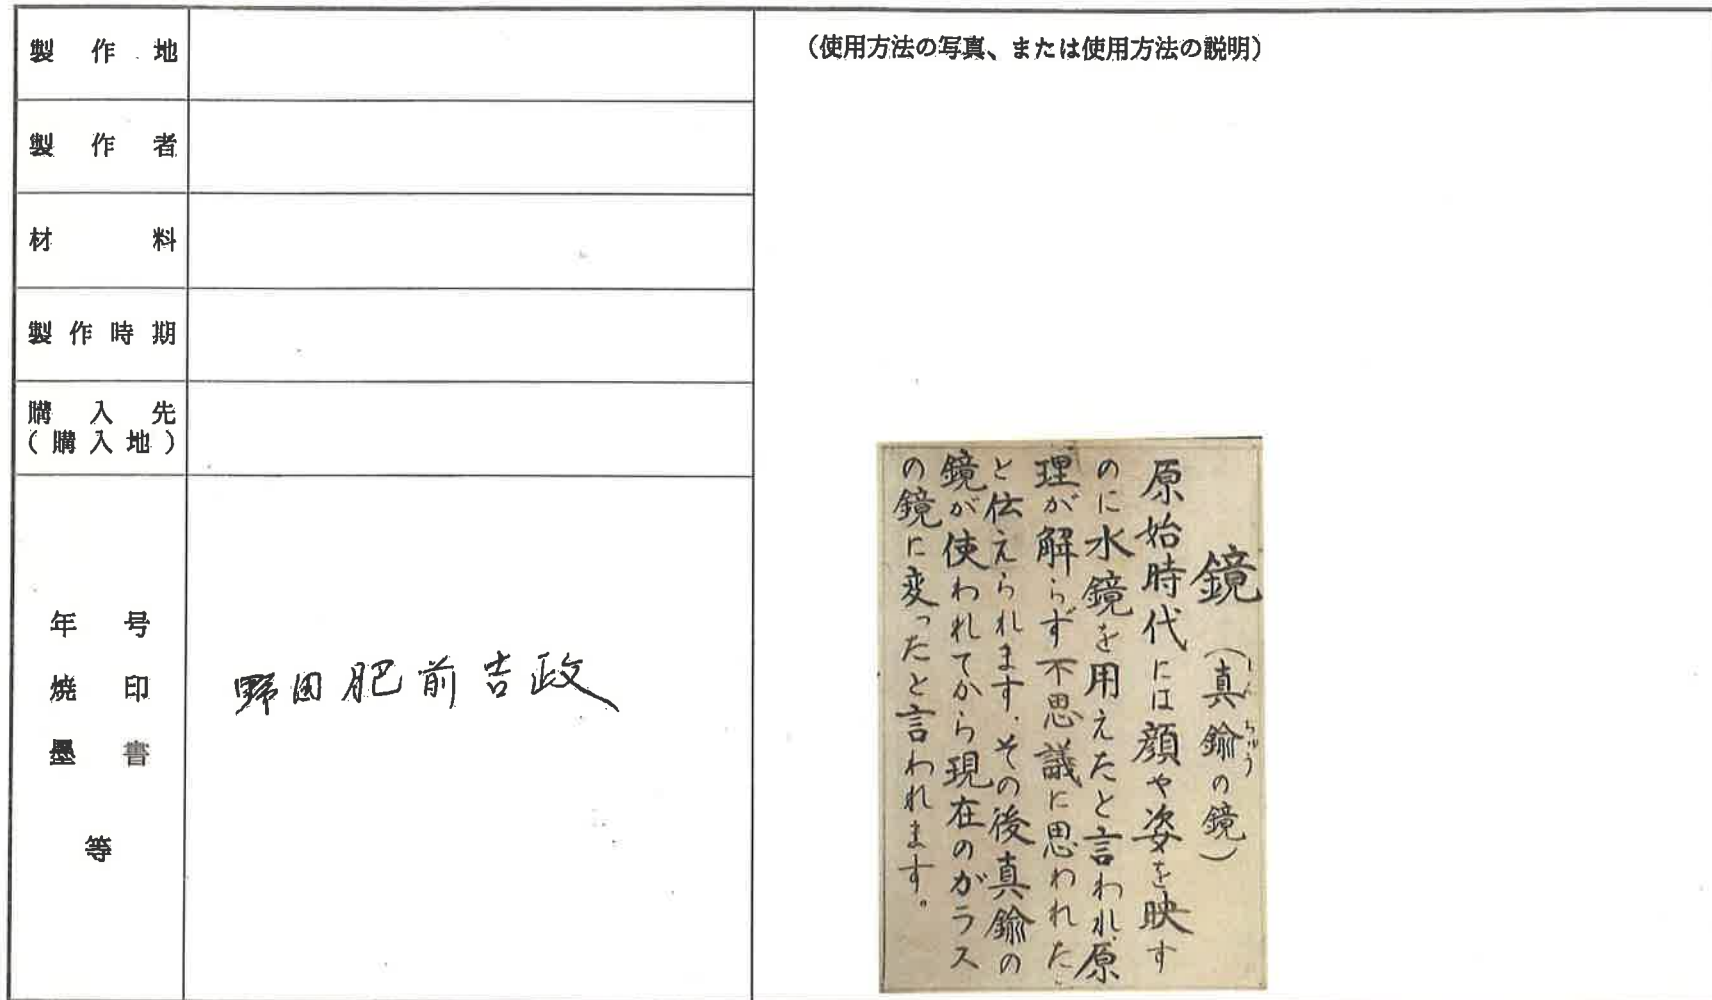 製作地
製作者
材料
製作時期
購入先
(購入地)
年号
焼印
墨書
等
野田肥前吉政
(使用方法の写真、または使用方法の説明)
鏡(真鍮の鏡)
しんちゅう
原始時代には顔や姿を映す
のに水鏡を用えたと言われ、原
理が解らず不思議に思われた
と伝えられます。その後真鍮の
鏡が使われてから現在のガラス
の鏡に変ったと言われます。